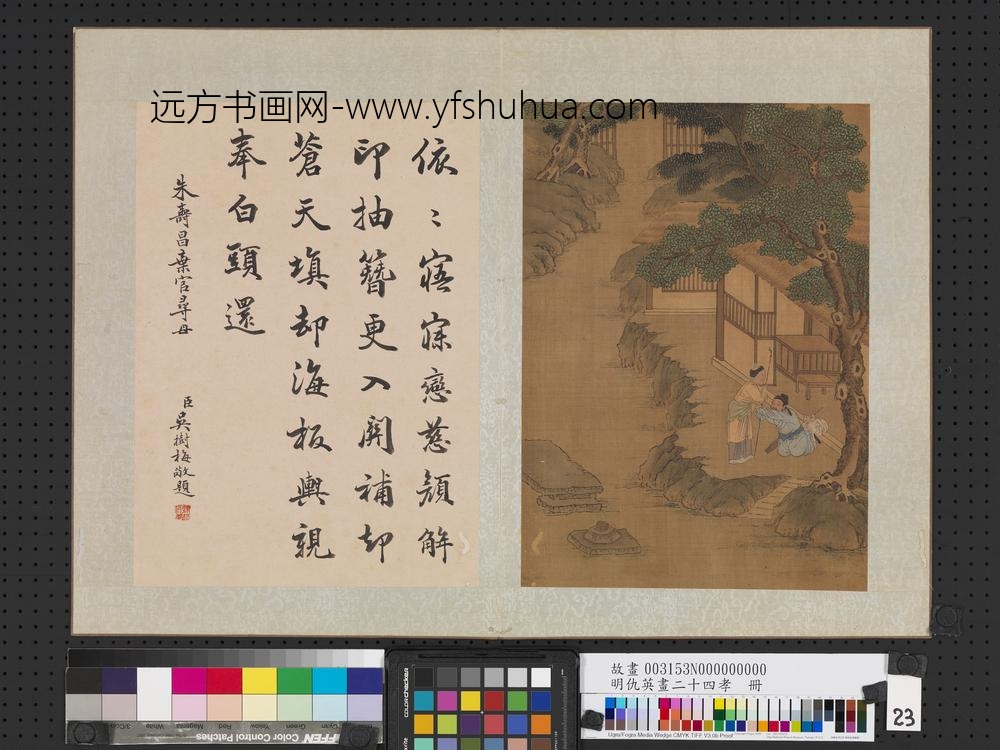 远方书画网-www.yfshuhua.com
依〻寤寐戀慈顏解
印抽簪更入關補却
蒼天填却海板輿親
奉白頭還
朱壽昌棄官尋母
臣吳樹梅敬題
colorchecker
TIFFEN Color Control Patches
故畫 003153N000000000
明仇英畫二十四孝 冊
Ugra/Fogra Media Wedge CMYK TIFF V3.0b Proof
23